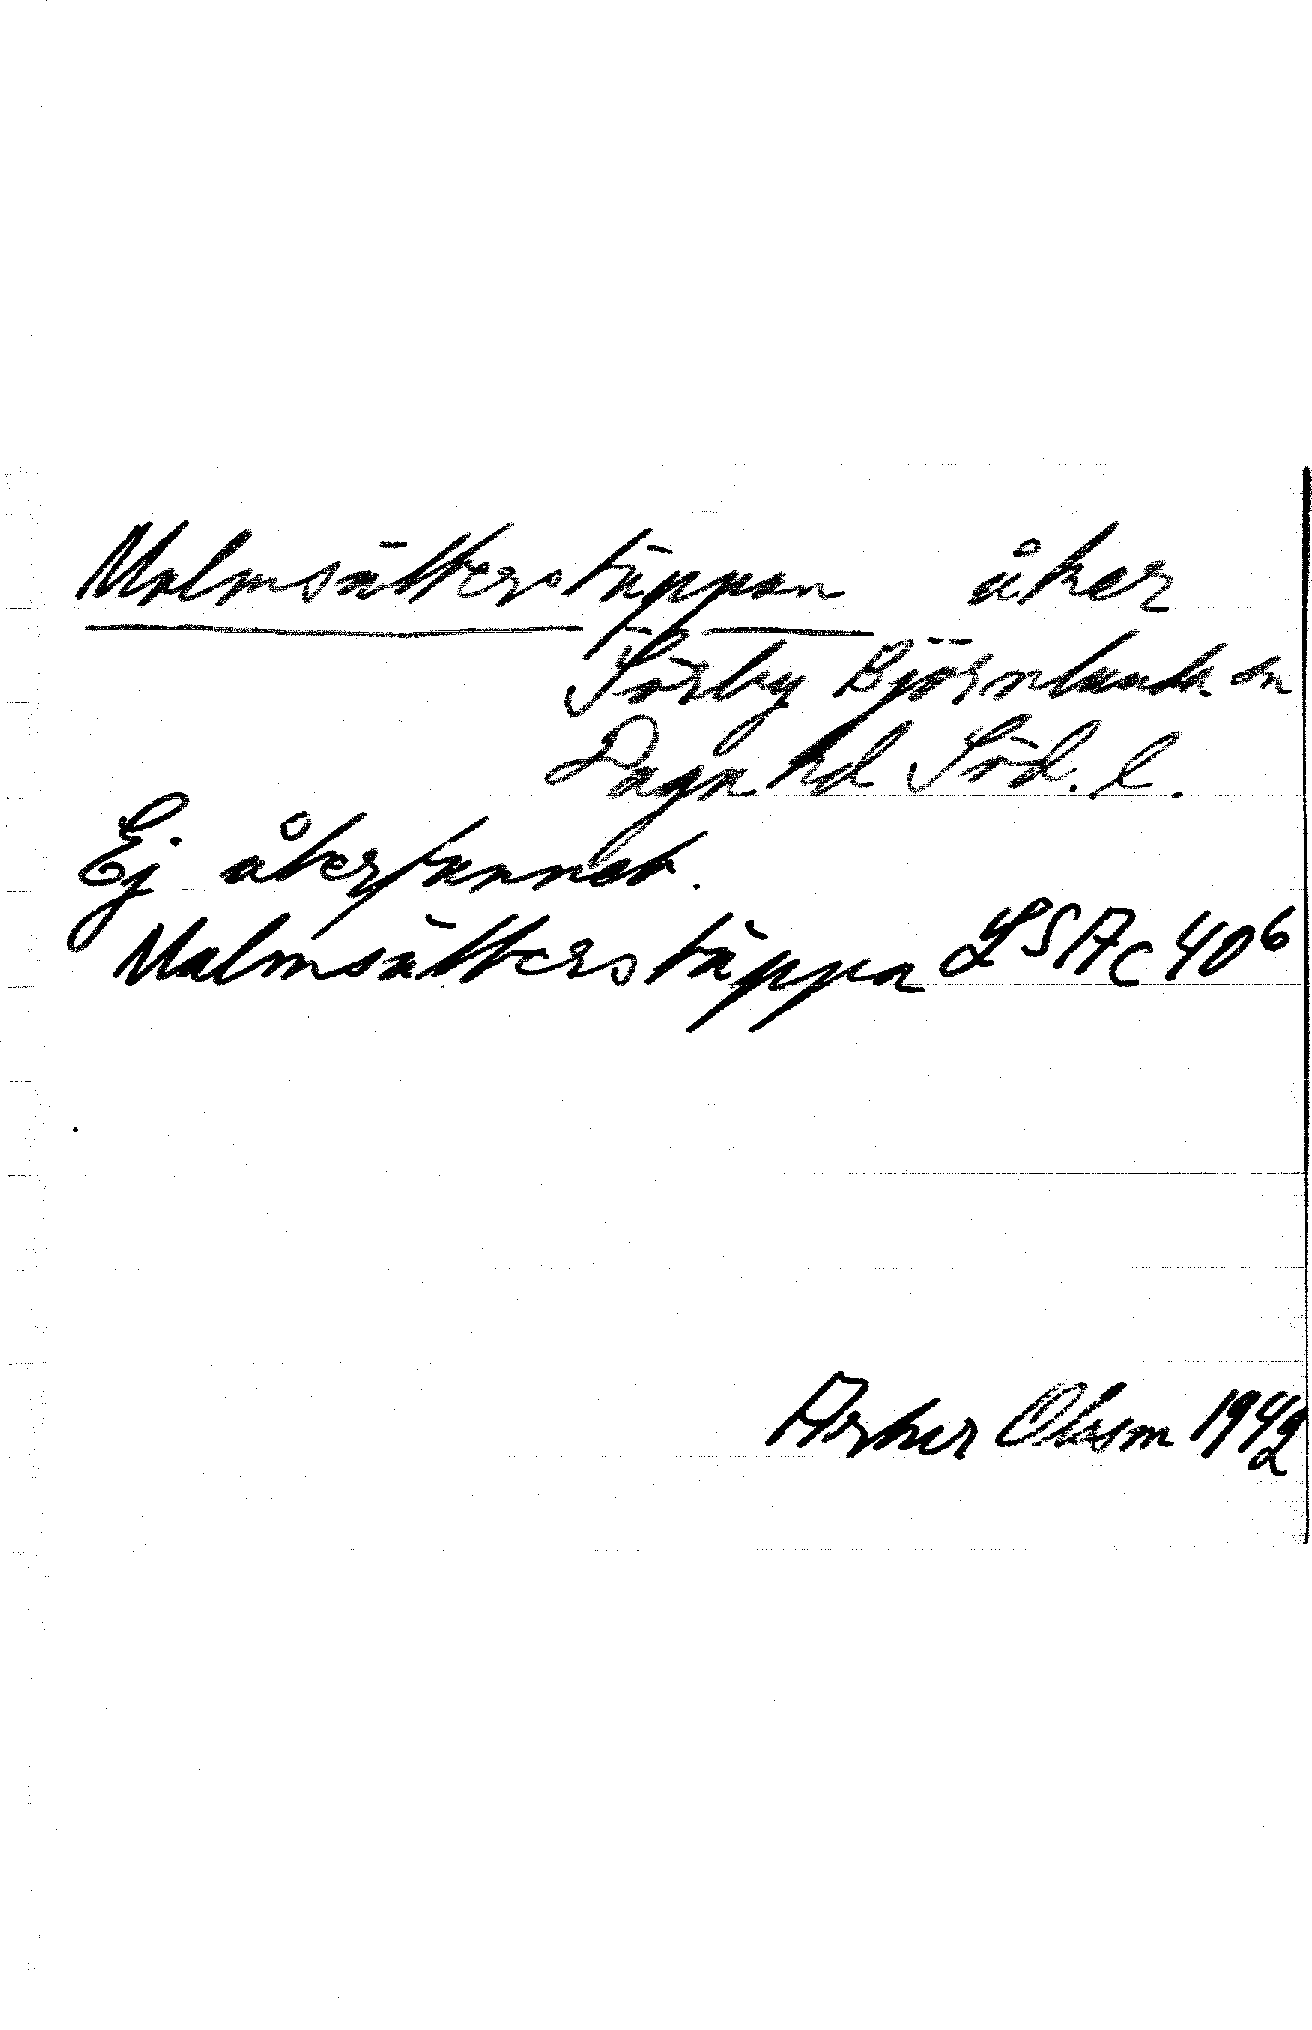 Malmsätterstäppan åker
Sörby Björnlunda sn
Daga hd Söd. l.
Ej återfunnet.
Malmsätterstäppa LSA C 40⁶
Olsson 1942